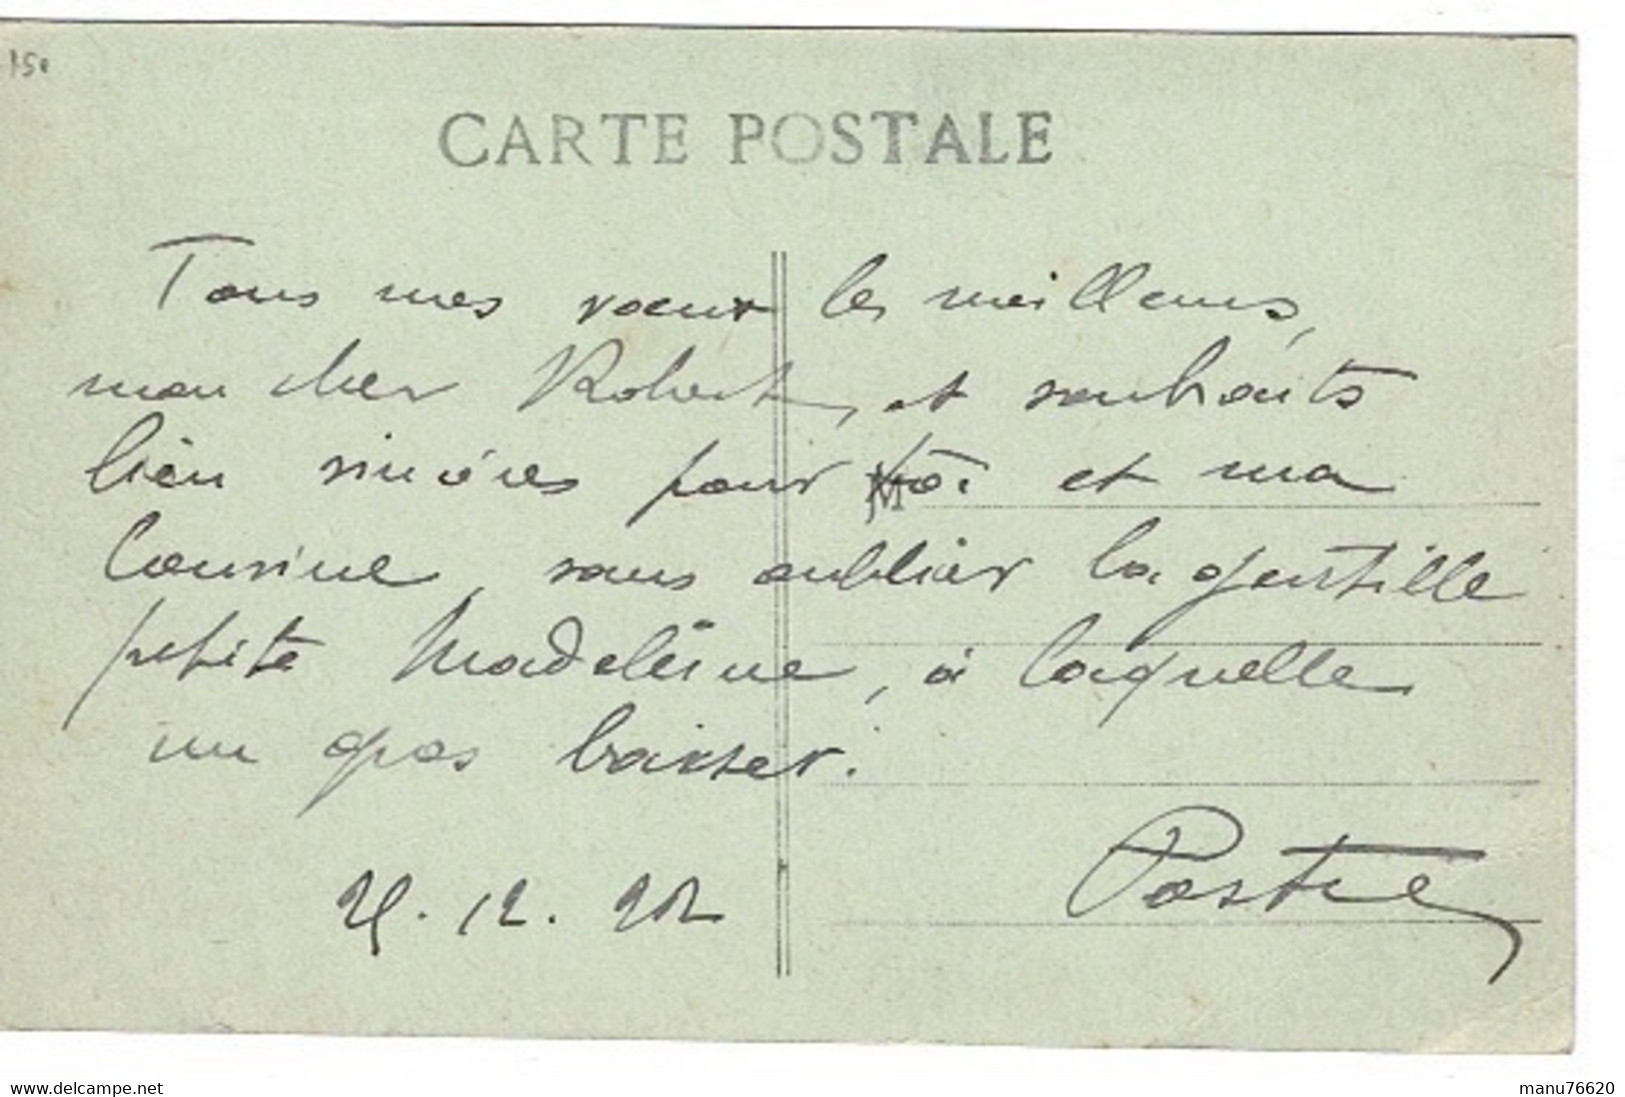 CARTE POSTALE
Tous mes voeux les meilleurs,
mon cher Robert, et souhaits
bien sincères pour toi et ma
Cousine, sans oublier la gentille
petite Madeleine, à laquelle
un gros baiser.
12.
Postre
www.delcampe.net
manu76620